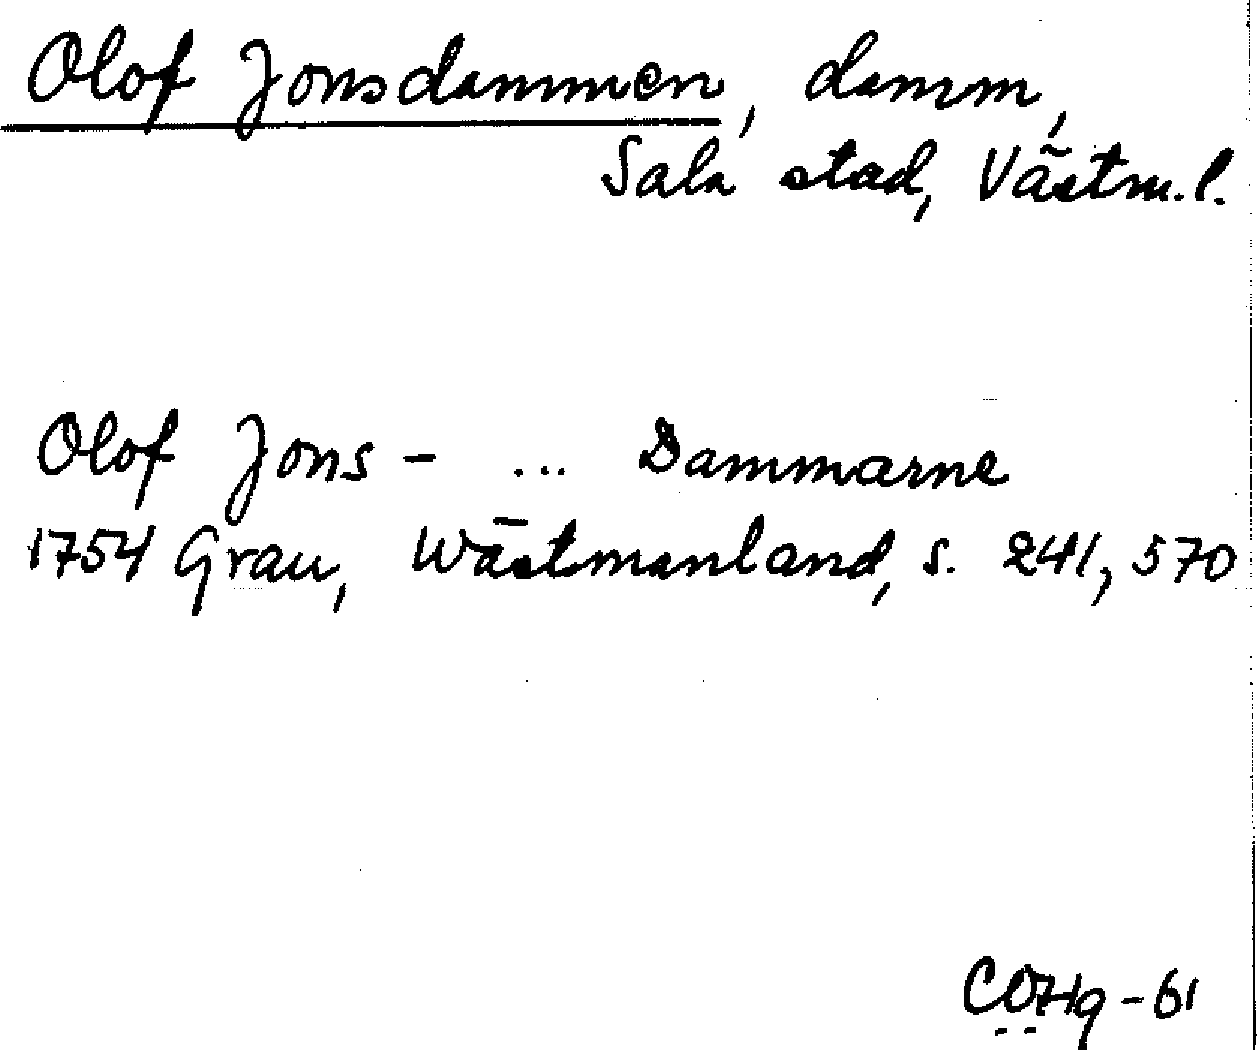 Olof Jonsdammen, damm,
Sala stad, Västm.l.
Olof Jons - ... Dammarne
1754 Grau, Wästmanland, s. 241, 570
COHg - 61